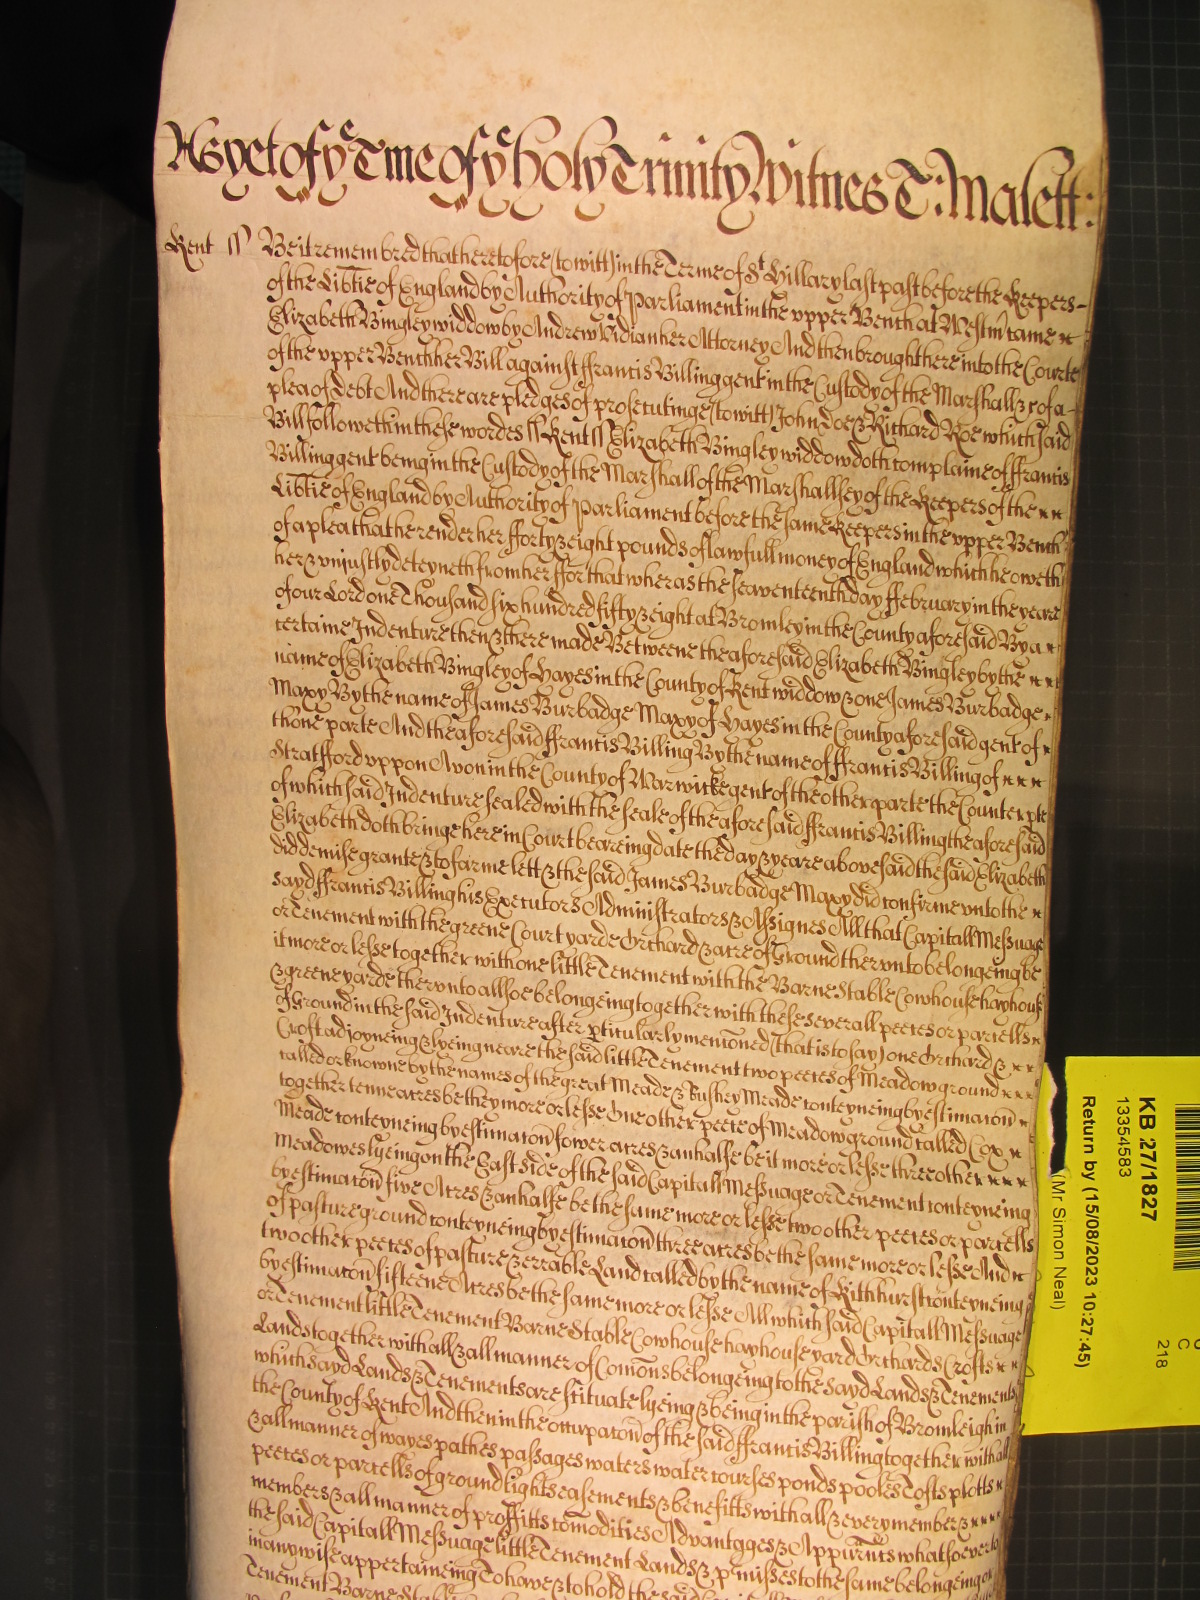 As yet of ye Tme of ye holy Trinity Witnes T: Malett:
Kent ss Be it remembred that heretofore (to witt) in the Terme of St Hillary last past before the Keepers-
of the Libtie of England by Authority of Parliament in the upper Bench at Westm came
Elizabeth Bingley widdow by Andrew Vidian her Attorney And then brought here into the Courte
of the upper Bench her Bill against ffrancis Billing gent in the Custody of the Marshall &c of a-
plea of debt And there are pledges of prosecutinge (to witt) John Doe & Richard Roe which said
Bill followeth in these wordes ss Kent ss Elizabeth Bingley widdow doth complaine of ffrancis
Billing gent being in the Custody of the Marshall of the Marshallsey of the Keepers of the
Libtie of England by Authority of Parliament before the same Keepers in the upper Bench
of a plea that he render her fforty & eight pounds of lawfull money of England which he oweth
her & uniustly deteyneth from her ffor that wheras the seaventeenth day ffebruary in the yeare
of our Lord one Thousand six hundred fifty & eight at Bromley in the County aforesaid By a
certaine Indenture then & there made Betweene the aforesaid Elizabeth Bingley by the
name of Elizabeth Bingley of Hayes in the County of Kent widdow & one James Burbadge
Maxy By the name of James Burbadge Maxy of Hayes in the County aforesaid gent of
thone parte And the aforesaid ffrancis Billing By the name of ffrancis Billing of
Stratford uppon Avon in the County of Warwicke gent of the other parte the Counter pte
of which said Indenture sealed with the seale of the aforesaid ffrancis Billing the aforesaid
Elizabeth doth bringe here in Court beareing date the day & yeare abovesaid the said Elizabeth
did demise grante & to farme lett & the said James Burbadge Maxy did confirme unto the
sayd ffrancis Billing his Executors Administrators & Assignes All that Capitall Messuage
or Tenement with the greene Court yarde Orchard & acre of Ground therunto belongeing be
it more or lesse together with one little Tenement with the Barne Stable Cowhouse hayhouse
& greene yarde therunto allsoe belongeing together with these severall peeces or parcells
of Ground in the said Indenture after pticularly mencioned (that is to say) one Orchard &
Croft adioyneing & lyeing neare the said little Tenement two peeces of Meadow ground
called or knowne by the names of the great Meade & Bushey Meade conteyneing by estimacon
together tenne acres be they more or lesse One other peece of Meadow ground called Cox
Meade conteyneing by estimacon fower acres & an halfe be it more or lesse three other
Meadowes lyeing on the East side of the said Capitall Messuage or Tenement conteyneing
by estimacon five Acres & an halfe be the same more or lesse two other peeces or parcells
of pasture ground conteyneing by estimacon three acres be the same more or lesse And
two other peeces of pasture & errable Land called by the name of Kithhurst conteyneing
by estimacon fifteene Acres be the same more or lesse All which said Capitall Messuage
or Tenement little Tenement Barne Stable Cowhouse hayhouse yard Orchards Crofts
Lands together with all & all manner of Comons belongeing to the sayd Lands & Tenements
which sayd Lands & Tenements are scituate lyeing & being in the parish of Bromleigh in
the County of Kent And then in the occupacon of the said ffrancis Billing together with all
& all manner of wayes pathes passages waters water courses ponds pooles Tofts plotts
peeces or parcells of ground lights easements & benefitts with all & every member &
members & all manner of proffitts comodities Advantages & Appurtnts whatsoever to
the said Capitall Messuage little Tenement Lands & pmisses to the same belongeing or
in any wise apperteineing To have & to hold the said Capitall
Tenement Barne Stable
KB 27/1827
13354583
Return by (15/08/2023 10:27:45)
(Mr Simon Neal)
218
C